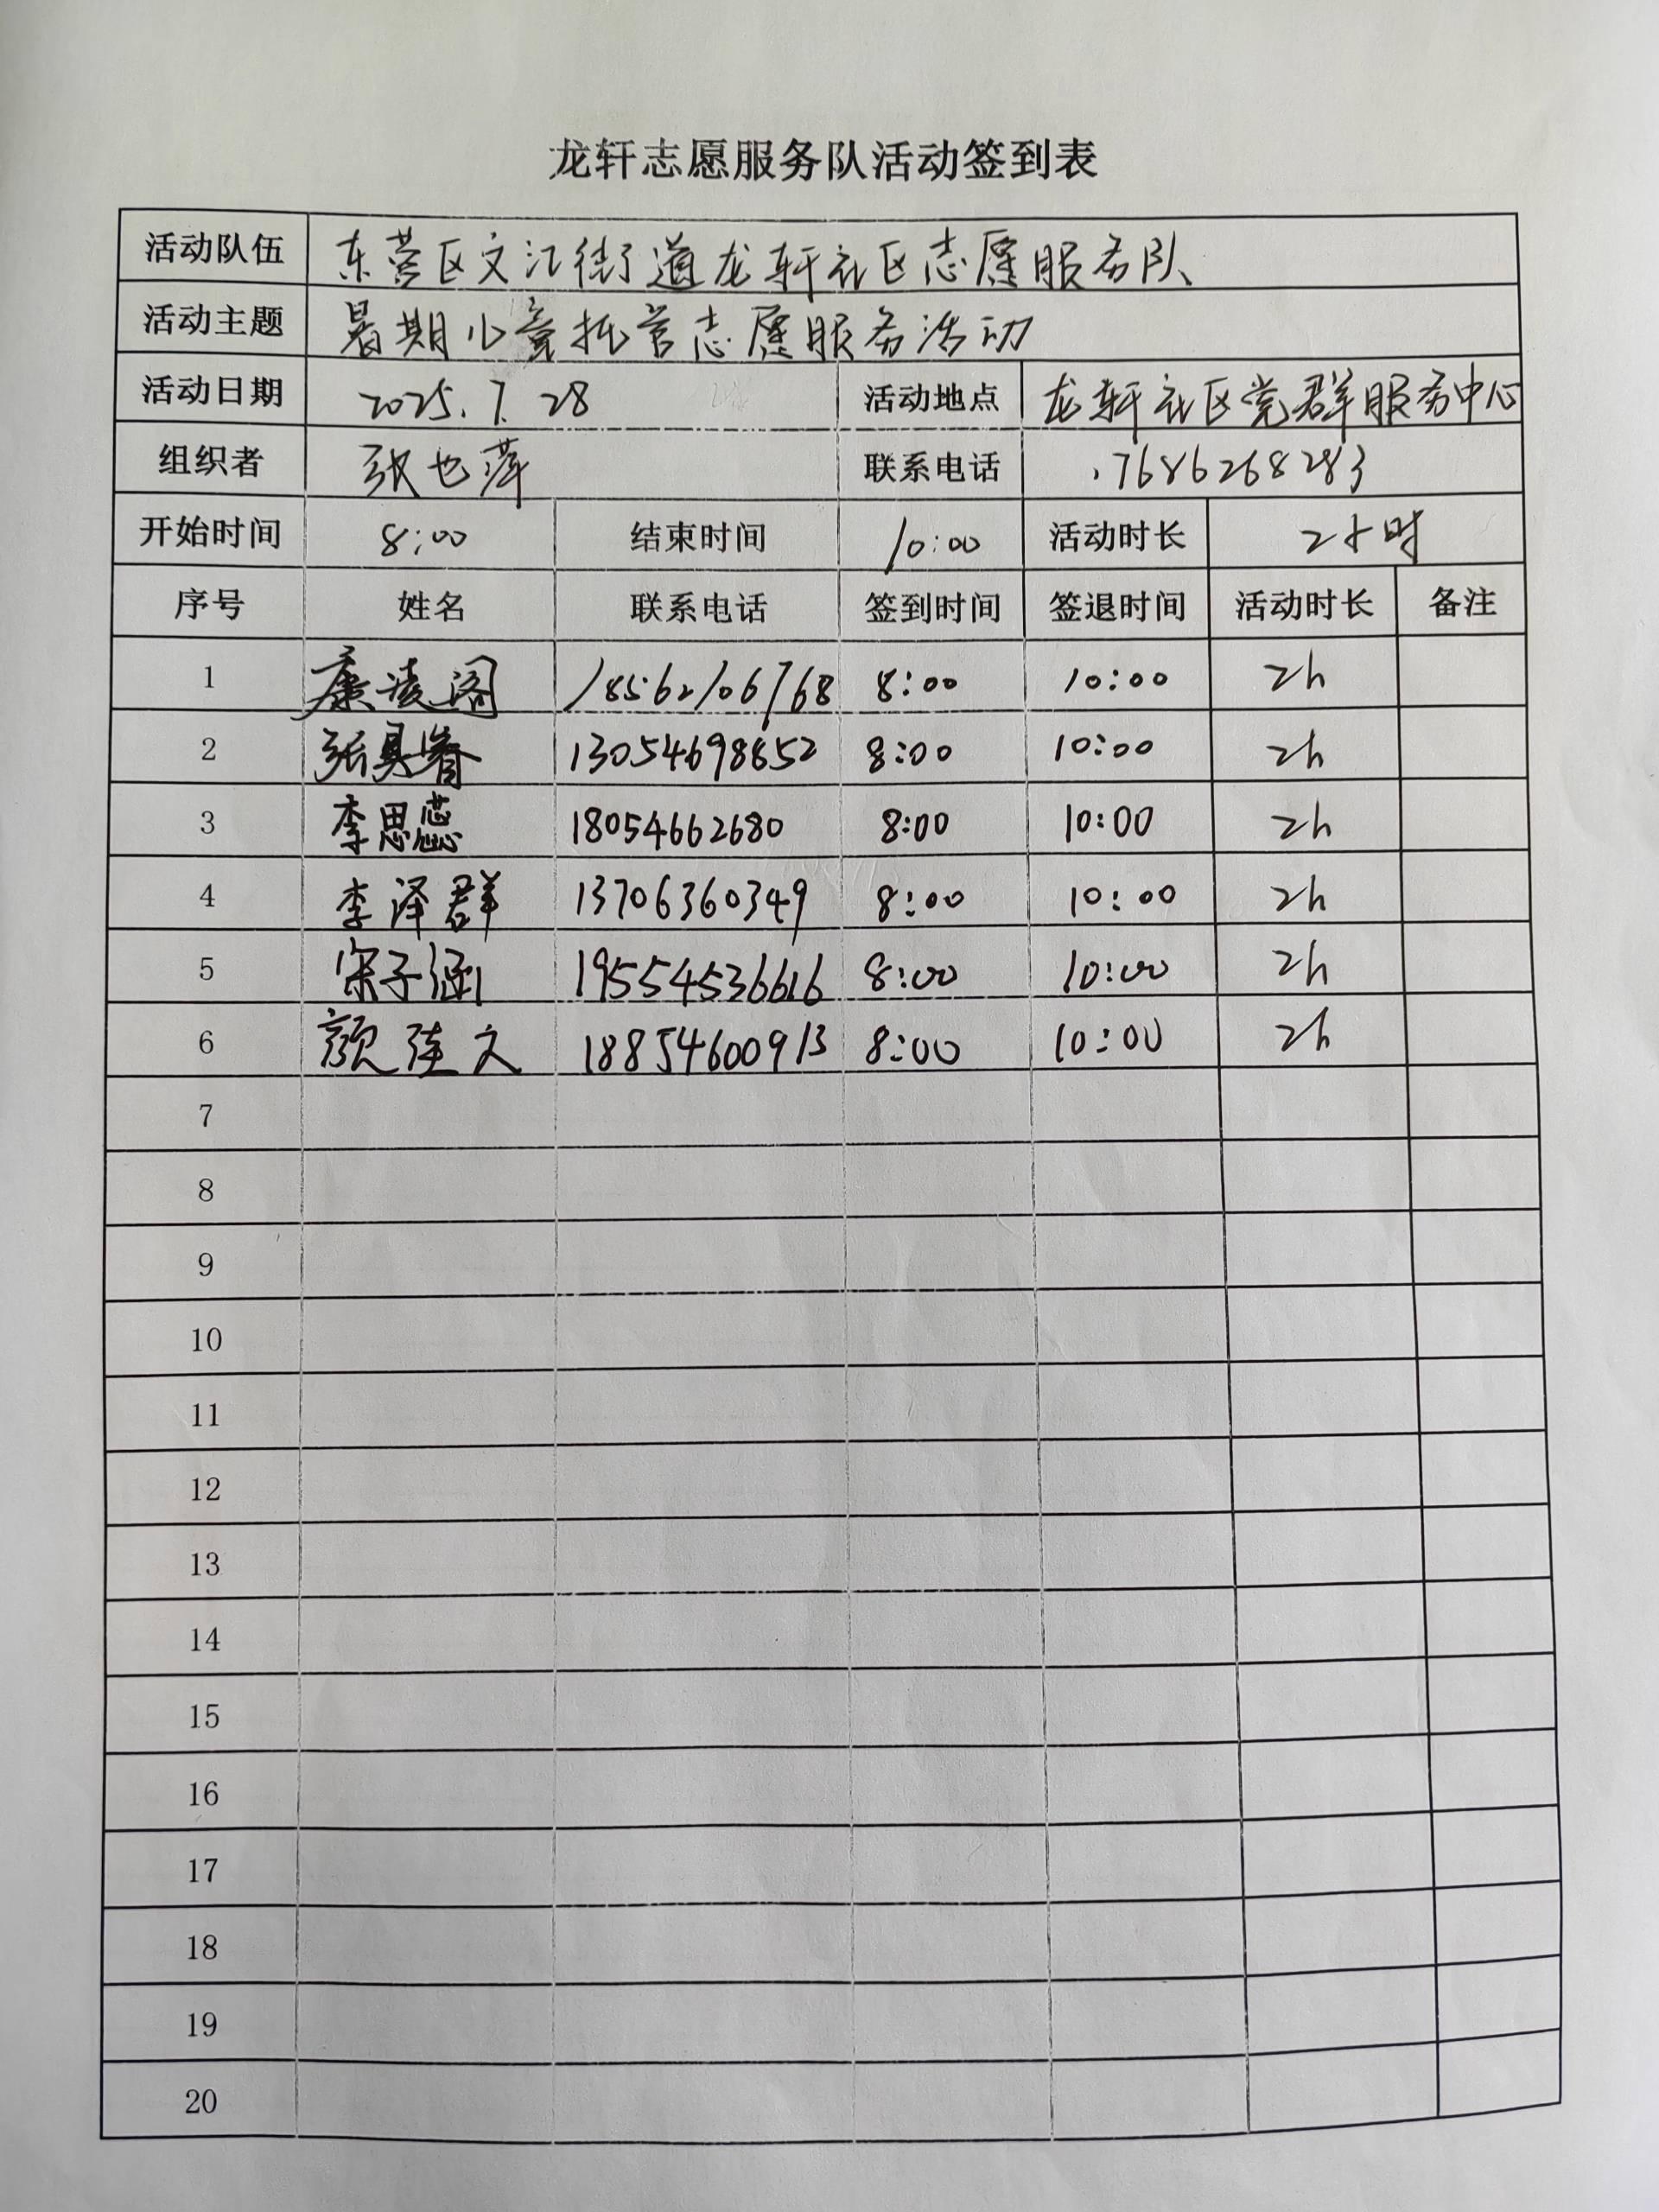 龙轩志愿服务队活动签到表
活动队伍 东营区文汇街道龙轩社区志愿服务队
活动主题 暑期儿童托管志愿服务活动
活动日期 2025.7.28 活动地点 龙轩社区党群服务中心
组织者 张也萍 联系电话 17686268283
开始时间 8:00 结束时间 10:00 活动时长 2小时
序号 姓名 联系电话 签到时间 签退时间 活动时长 备注
1 康凌阁 18562106768 8:00 10:00 2h
2 张 13054698852 8:00 10:00 2h
3 李思蕊 18054662680 8:00 10:00 2h
4 李泽群 13706360349 8:00 10:00 2h
5 宋子涵 19554536616 8:00 10:00 2h
6 颜 文 18854600913 8:00 10:00 2h
7
8
9
10
11
12
13
14
15
16
17
18
19
20